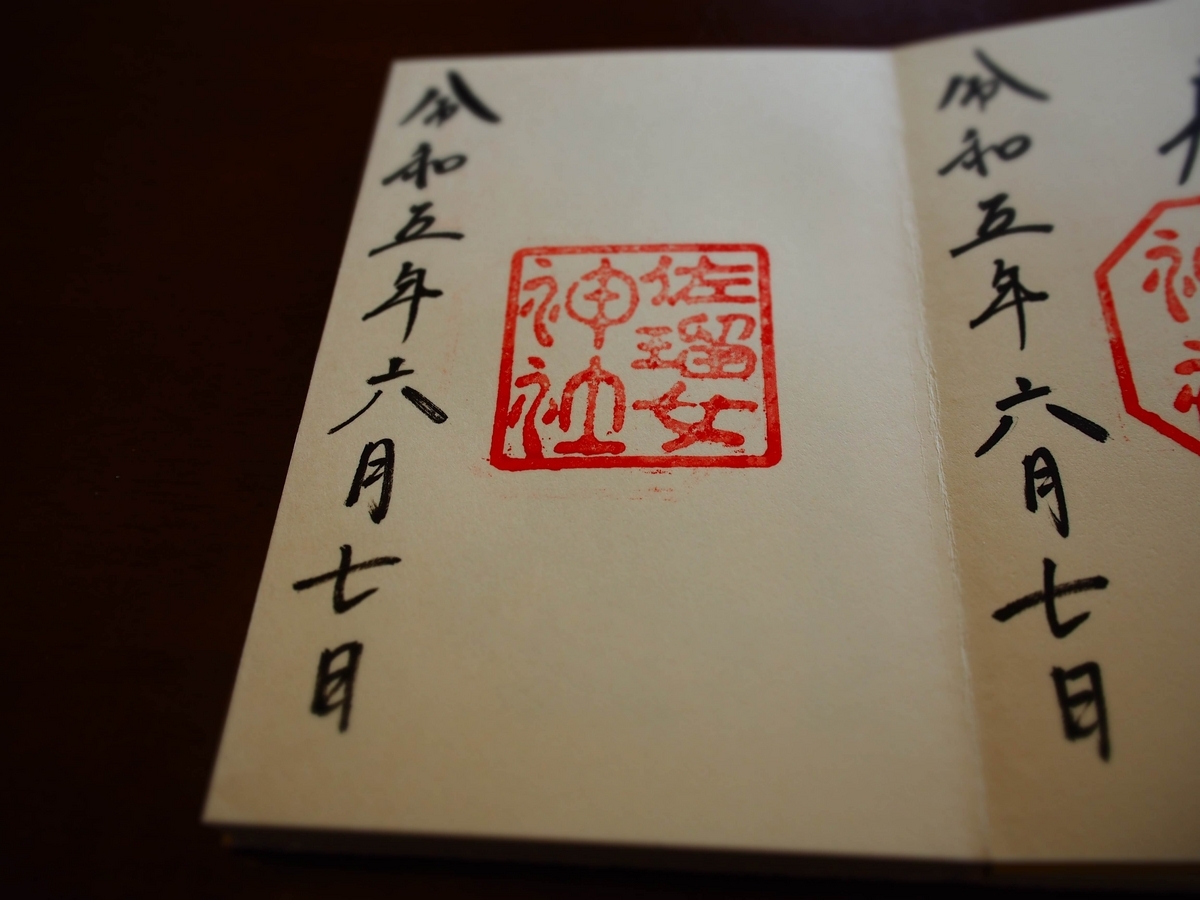 令和五年六月七日
佐瑠女
神社
令和五年六月七日